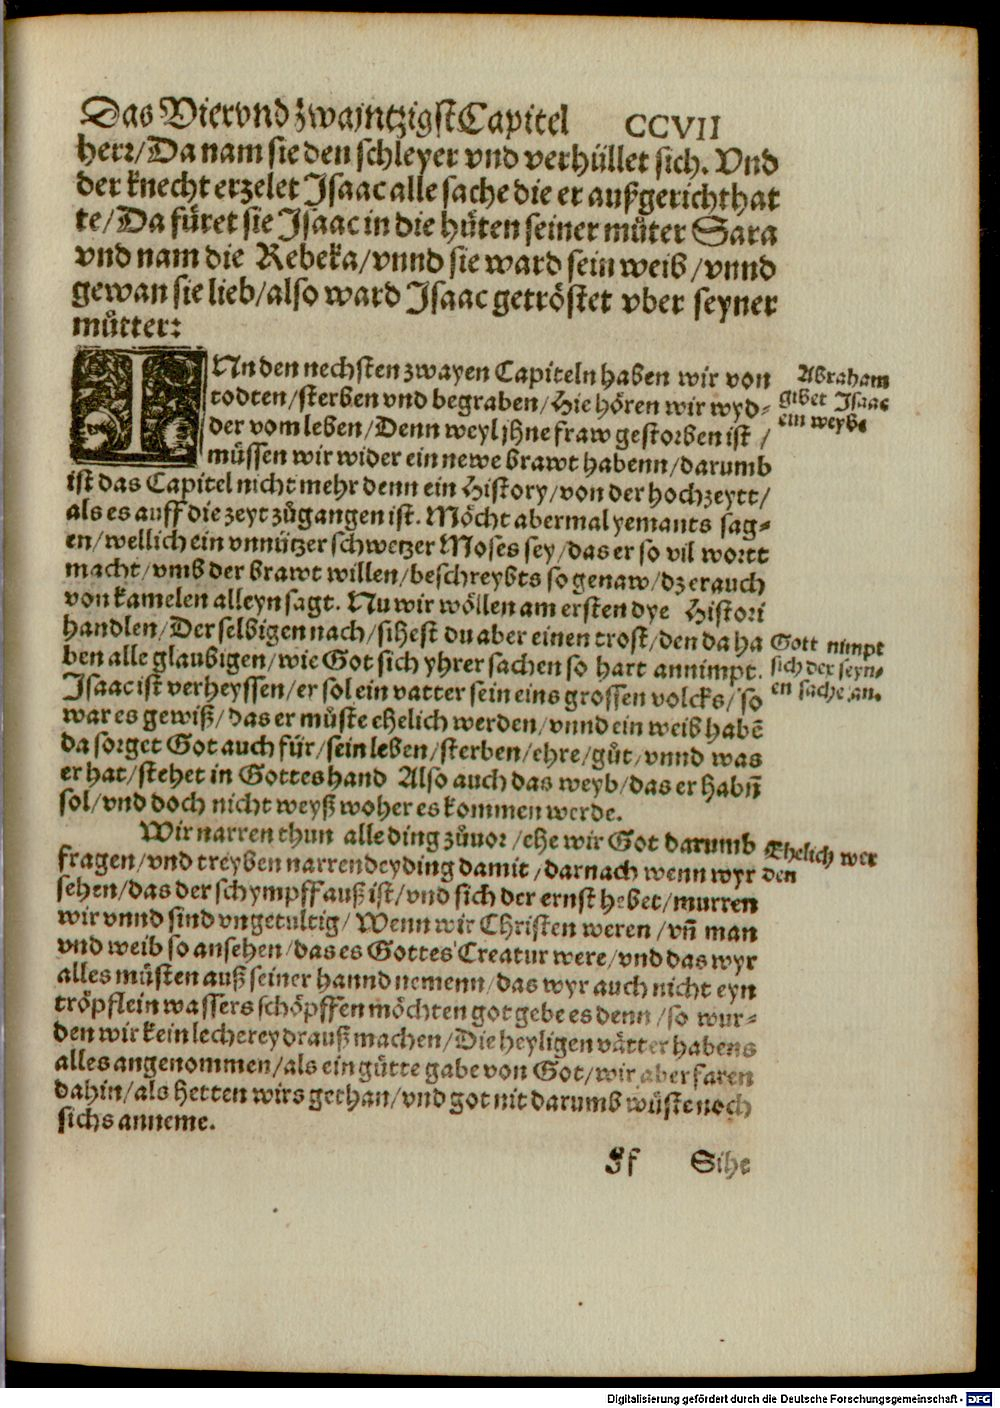 Das Viervnd zwajntzigst Capitel CCVII
herr/ Da nam sie den schleyer vnd verhüllet sich. Vnd
der knecht erzelet Isaac alle sache die er außgericht hat
te/ Da füret sie Isaac in die hüten seiner můter Sara
vnd nam die Rebeka/ vnnd sie ward sein weib/ vnnd
gewan sie lieb/ also ward Isaac getröstet vber seyner
můtter:
IN den nechsten zwayen Capiteln haben wir von
todten/ sterben vnd begraben/ Hie hören wir wyd-
der vom leben/ Denn weyl jhne fraw gestorben ist/
müssen wir wider ein newe brawt habenn/ darumb
ist das Capitel nicht mehr denn ein History/ von der hochzeytt/
als es auff die zeyt zůgangen ist. Möcht abermal yemants sag-
en/ wellich ein vnnützer schwetzer Moses sey/ das er so vil wortt
macht/ vmb der brawt willen/ beschreybts so genaw/ dz er auch
von kamelen alleyn sagt. Nu wir wöllen am ersten dye Histori
handlen/ Der selbigen nach/ sihest du aber einen trost/ den da ha
ben alle glaubigen/ wie Got sich yhrer sachen so hart annimpt.
Isaac ist verheyssen/ er sol ein vatter sein eins grossen volcks/ so
war es gewiß/ das er můste ehelich werden/ vnnd ein weib habē
da sorget Got auch für/ sein leben/ sterben/ ehre/ gůt/ vnnd was
er hat/ stehet in Gottes hand Also auch das weyb/ das er habn̄
sol/ vnd doch nicht weyß woher es kommen werde.
Wir narren thun alle ding zůuor/ ehe wir Got darumb
fragen/ vnd treyben narrendeyding damit/ darnach wenn wyr
sehen/ das der schympff auß ist/ vnd sich der ernst hebet/ murren
wir vnnd sind vngetultig/ Wenn wir Christen weren/ vn̄ man
vnd weib so ansehen/ das es Gottes Creatur were/ vnd das wyr
alles müsten auß seiner hannd nemenn/ das wyr auch nicht eyn
tröpflein wassers schöpffen möchten got gebe es denn/ so wur-
den wir kein lecherey drauß machen/ Die heyligen vätter habens
alles angenommen/ als ein gütte gabe von Got/ wir aber faren
dahin/ als hetten wirs gethan/ vnd got nit darumb wüste noch
sichs anneme.
Ff Sihe
Abraham
gibet Isaac
ein weybe
Gott nimpt
sich der seyn-
en sache an.
Ehelich wer
den
Digitalisierung gefördert durch die Deutsche Forschungsgemeinschaft - DFG